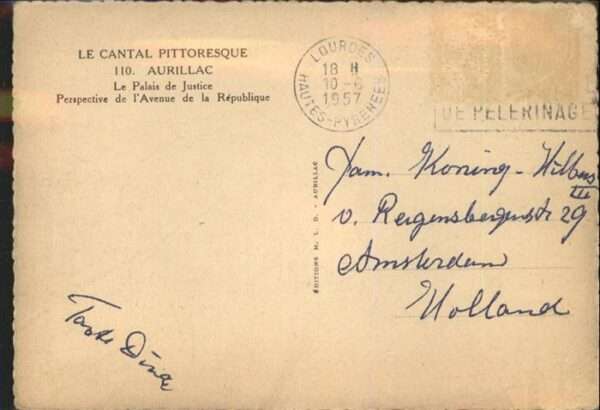 LE CANTAL PITTORESQUE
110. AURILLAC
Le Palais de Justice
Perspective de l'Avenue de la République
LOURDES
18 H
10-6
1957
HAUTES-PYRENEES
DE PELERINAGE
ÉDITIONS M. L. D. - AURILLAC
Fam. Koning-Wilbus
III
v. Reigensbergenstr 29
Amsterdam
Holland
Tante Dina